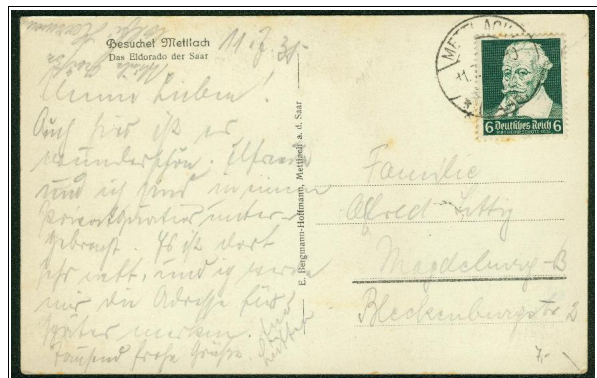 Besuchet Mettlach
Das Eldorado der Saar
11.7.35
Meine Lieben!
Auch hier ist es
wunderschön.
und ich sind in einem
Privatquartier unter-
gebracht. Es ist dort
sehr nett, und ich werde
mir die Adresse für
später merken.
Tausend frohe Grüße
E. Bergmann-Hoffmann, Mettlach a. d. Saar
METTLACH
11.
6 Deutsches Reich 6
Familie
Alfred
Magdeburg-B
Bleckenburgstr 2
7.-